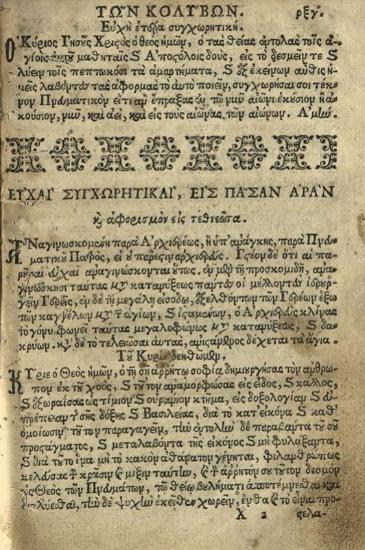 ΤΩΝ ΚΟΛΥΒΩΝ. ρξγ.
Εὐχὴ ἑτέρα συγχωρητική.
Ο Κύριος Ἰησοῦς Χριστὸς ὁ θεὸς ἡμῶν, ὁ τὰς θείας ἐντολὰς τοῖς ἁ-
γίοις μαθηταῖς καὶ Ἀποστόλοις δοὺς, εἰς τὸ δεσμεῖν τε καὶ
λύειν τοῖς πεπτωκόσι τὰ ἁμαρτήματα, καὶ ἐξ ἐκείνων αὖθις ἡ-
μεῖς λαβόντες τὰς ἀφορμὰς τὸ αὐτὸ ποιεῖν, συγχωρήσαι σοι τέκ-
νον Πνευματικὸν εἴτι ἂν ἔπραξας ἐν τῷ νῦν αἰῶνι ἑκούσιον ἢ ἀ-
κούσιον, νῦν, καὶ ἀεὶ, καὶ εἰς τοὺς αἰῶνας τῶν αἰώνων. Ἀμήν.
ΕΥΧΑΙ ΣΥΓΧΩΡΗΤΙΚΑΙ, ΕΙΣ ΠΑΣΑΝ ΑΡΑΝ
κ ἀφορισμὸν εἰς τεθνεῶτα.
Ἀναγινωσκομεναι παρὰ Ἀρχιερέως, ἢ ὑπ' ἀνάγκης, παρὰ Πνευ-
ματικοῦ Πατρὸς, εἰ οὐ πάρεστιν ἀρχιερεύς. Ἰστέον δὲ ὅτι αἱ πα-
ἀναγινώσκονται οὕτως, ἐν μὲν τῇ προσκομιδῇ, ἀνα-
γινώσκουσι ταύτας μετὰ κατανύξεως πάντες οἱ μέλλοντες ἱερουρ-
γεῖν Ἱερεῖς, ἐν δὲ τῇ μεγάλῃ εἰσόδῳ, ἐξελθόντων τῶν Ἱερέων ἔξω
τῶν καγγέλων μετὰ τῶν ἁγίων, καὶ ἱσταμένων, ὁ Ἀρχιερεὺς κλίνας
τὸ γόνυ φωνεῖ ταύτας μεγαλοφώνως μετὰ κατανύξεως, καὶ δα-
κρύων. μετὰ δὲ τὸ τελειῶσαι αὐτὰς, ἀνιστάμενος δέχεται τὰ ἅγια.
Τοῦ Κυρίου δεηθῶμεν.
Κύριε ὁ Θεὸς ἡμῶν, ὁ τῇ σῇ ἀρρήτῳ σοφίᾳ δημιουργήσας τὸν ἄνθρω-
πον ἐκ τοῦ χοὸς, καὶ τοῦτον ἀναμορφώσας εἰς εἶδος, καὶ κάλλος,
καὶ ἐξωραΐσας ὡς τίμιον καὶ οὐράνιον κτῆμα, εἰς δοξολογίαν καὶ εὐ-
πρέπειαν τῆς σῆς δόξης καὶ Βασιλείας, διὰ τὸ κατ' εἰκόνα καὶ καθ'
ὁμοίωσιν τοῦτον παραγαγεῖν, τὴν ἐντολὴν δὲ παραβάντα τοῦ σοῦ
προστάγματος, καὶ μεταλαβόντα τῆς εἰκόνος καὶ μὴ φυλάξαντα,
καὶ διὰ τοῦτο ἵνα μὴ τὸ κακὸν ἀθάνατον γένηται, φιλανθρώπως
κελεύσας τὴν κρᾶσιν καὶ μίξιν ταύτην, καὶ τὸν ἄρρητόν σου τοῦτον δεσμὸν
ὡς Θεὸς τῶν Πνευμάτων, τῷ θείῳ βουλήματι ἀποτέμνεσθαι καὶ
διαλύεσθαι, τὴν δὲ ψυχὴν ἐκεῖθεν χωρεῖν, ἔνθα καὶ τὸ εἶναι προ-
Χ 2 σελα-